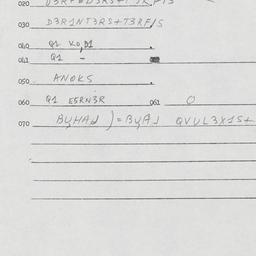 020
030 D3R1NT3RS+T3RF/S
040 Q1 K0,D1
041 Q1 -
050 ANOKS
060 Q1 E5RN3R 061 0
070 BYHAd )=BYAJ QVVL3X1S+